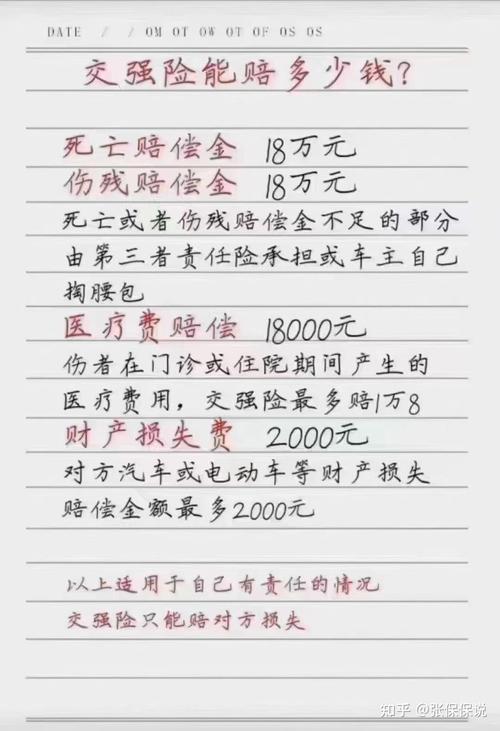 DATE / / OM OT OW OT OF OS OS
交强险能赔多少钱?
死亡赔偿金 18万元
伤残赔偿金 18万元
死亡或者伤残赔偿金不足的部分
由第三者责任险承担或车主自己
掏腰包
医疗费赔偿 18000元
伤者在门诊或住院期间产生的
医疗费用，交强险最多赔1万8
财产损失费 2000元
对方汽车或电动车等财产损失
赔偿金额最多2000元
以上适用于自己有责任的情况
交强险只能赔对方损失
知乎 @张保保说